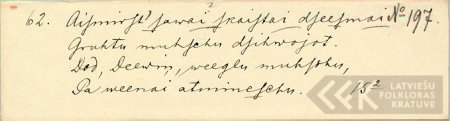 62. Aismirst' sawai skaistai dseesmai № 197.
Gruhtu muhschu dsihwojot.
Dod, Deewin, weeglu muhschu,
Pa weenai atmineschu. 15²
LATVIEŠU
FOLKLORAS
KRĀTUVE